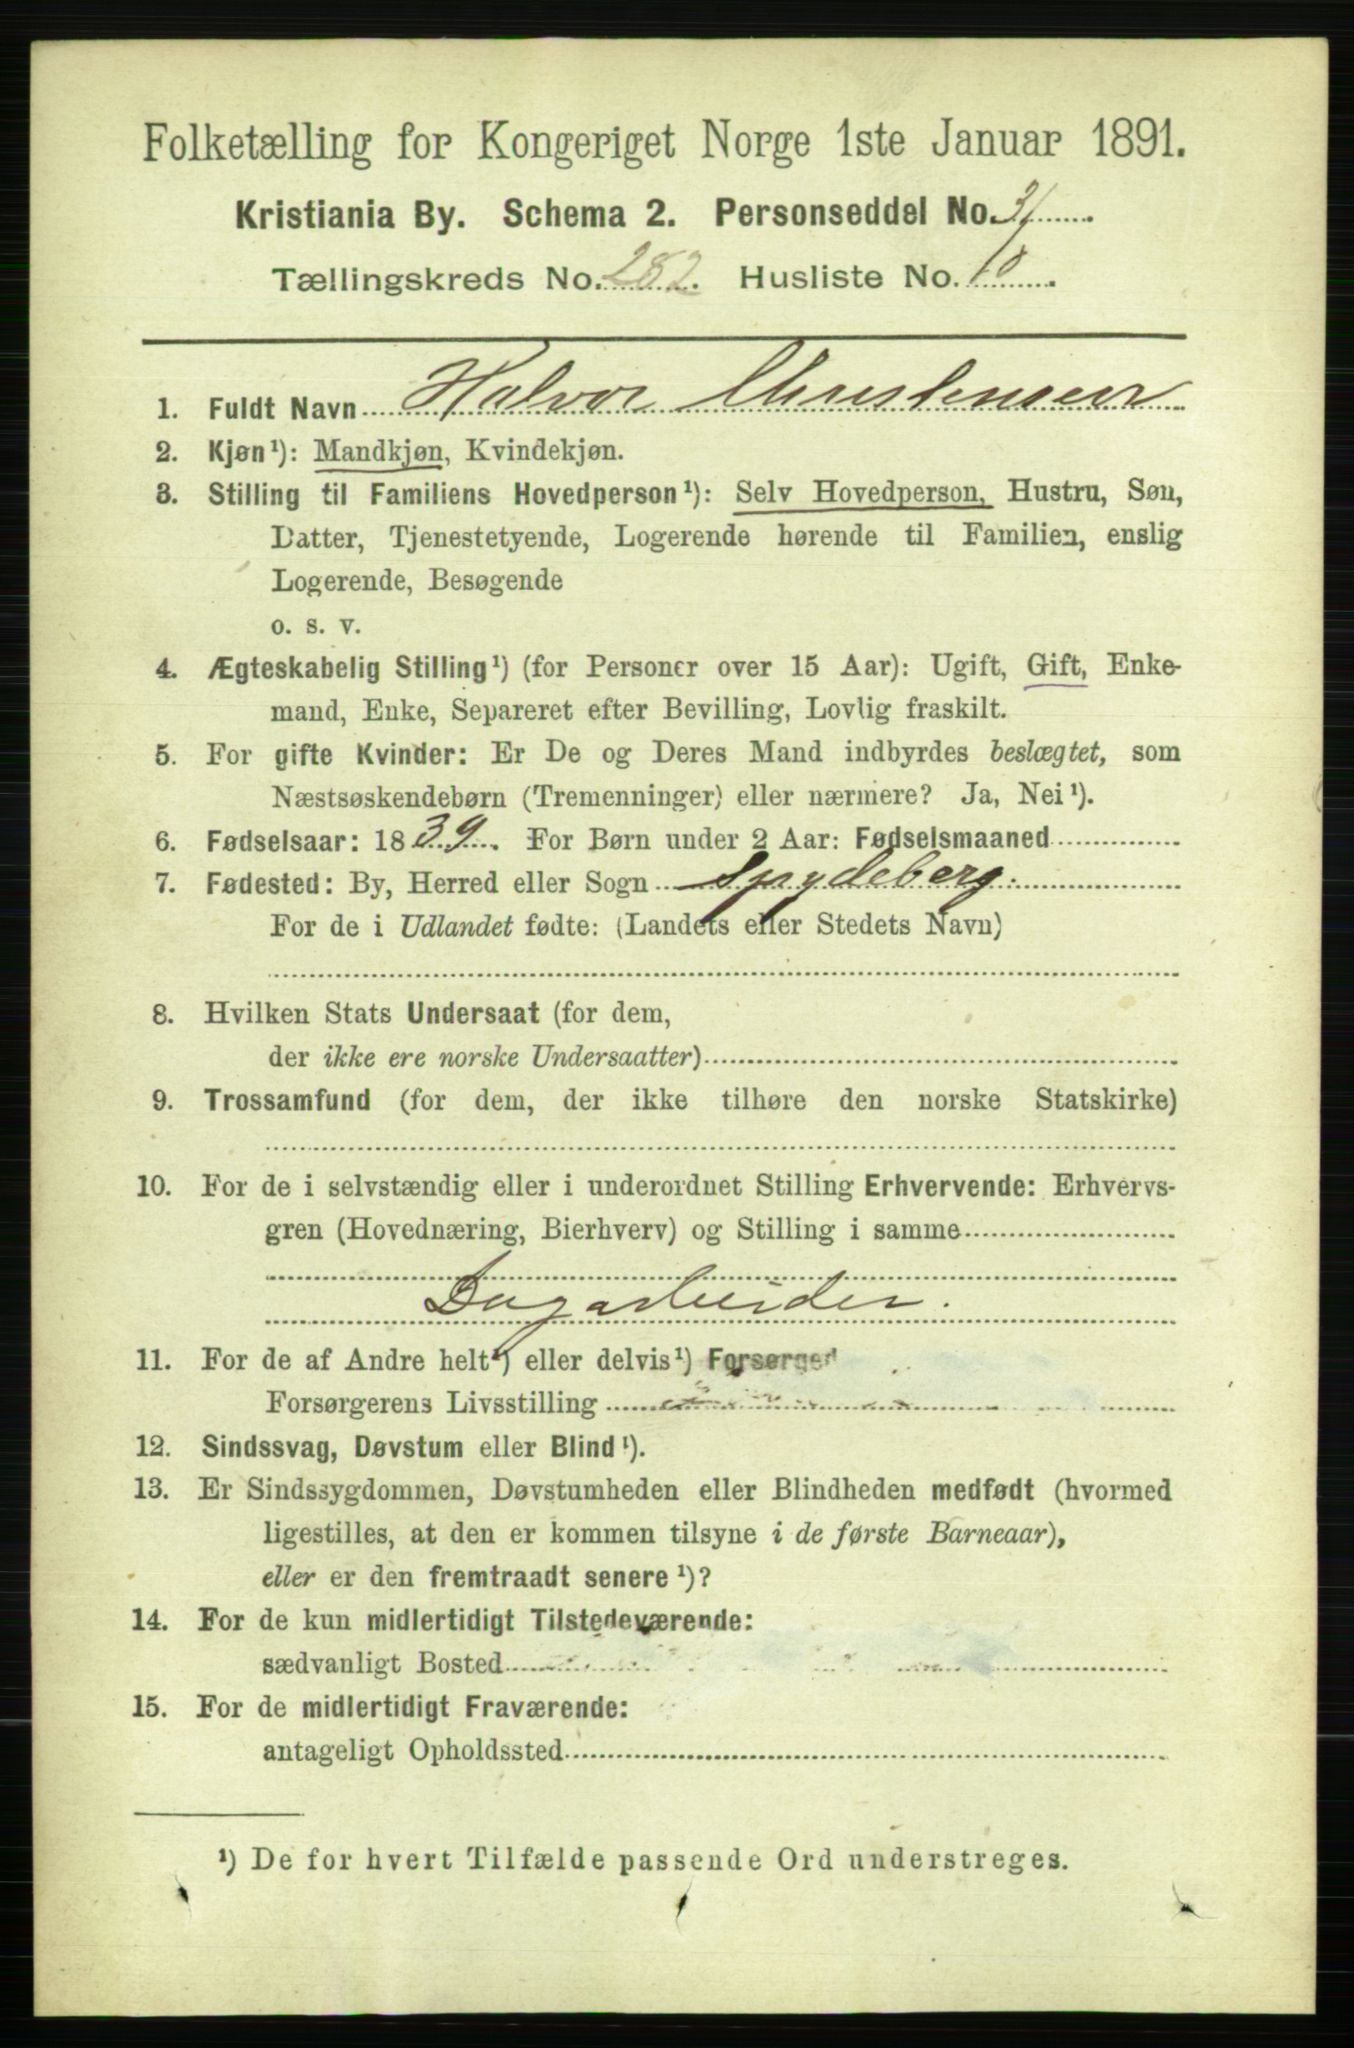 Folketælling for Kongeriget Norge 1ste Januar 1891.
Kristiania By. Schema 2. Personseddel No. 31
Tællingskreds No. 282. Husliste No. 10.
1. Fuldt Navn Halvor Christensen
2. Kjøn¹): Mandkjøn, Kvindekjøn.
3. Stilling til Familiens Hovedperson¹): Selv Hovedperson, Hustru, Søn,
Datter, Tjenestetyende, Logerende hørende til Familien, enslig
Logerende, Besøgende
o. s. v.
4. Ægteskabelig Stilling¹) (for Personer over 15 Aar): Ugift, Gift, Enke-
mand, Enke, Separeret efter Bevilling, Lovlig fraskilt.
5. For gifte Kvinder: Er De og Deres Mand indbyrdes beslægtet, som
Næstsøskendebørn (Tremenninger) eller nærmere? Ja, Nei¹).
6. Fødselsaar: 1839. For Børn under 2 Aar: Fødselsmaaned
7. Fødested: By, Herred eller Sogn Spydeberg.
For de i Udlandet fødte: (Landets eller Stedets Navn)
8. Hvilken Stats Undersaat (for dem,
der ikke ere norske Undersaatter)
9. Trossamfund (for dem, der ikke tilhøre den norske Statskirke)
10. For de i selvstændig eller i underordnet Stilling Erhvervende: Erhvervs-
gren (Hovednæring, Bierhverv) og Stilling i samme
Dagarbeider.
11. For de af Andre helt¹) eller delvis¹) Forsørged
Forsørgerens Livsstilling
12. Sindssvag, Døvstum eller Blind¹).
13. Er Sindssygdommen, Døvstumheden eller Blindheden medfødt (hvormed
ligestilles, at den er kommen tilsyne i de første Barneaar),
eller er den fremtraadt senere¹)?
14. For de kun midlertidigt Tilstedeværende:
sædvanligt Bosted
15. For de midlertidigt Fraværende:
antageligt Opholdssted
¹) De for hvert Tilfælde passende Ord understreges.